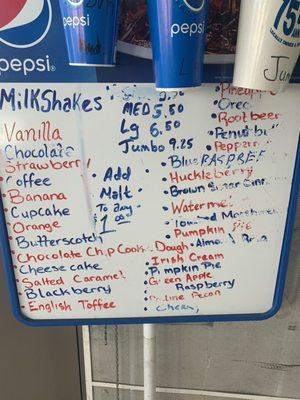 pepsi
pepsi
pepsi
75
L
Jum
MilkShakes
MED 5.50
Lg 6.50
Jumbo 9.25
Vanilla
Chocolate
Strawberry
Coffee
Banana
Cupcake
Orange
Butterscotch
Chocolate Chip Cookie Dough
Cheesecake
Salted Caramel
Blackberry
English Toffee
Add
Malt
To any
$1.00
Pineapple
Oreo
Root beer
Peanut
Blue
Huckleberry
Brown Sugar
Pumpkin Pie
Almond
Irish Cream
Pimpkin Pie
Green Apple
Raspberry
Praline Pecan
Cherry